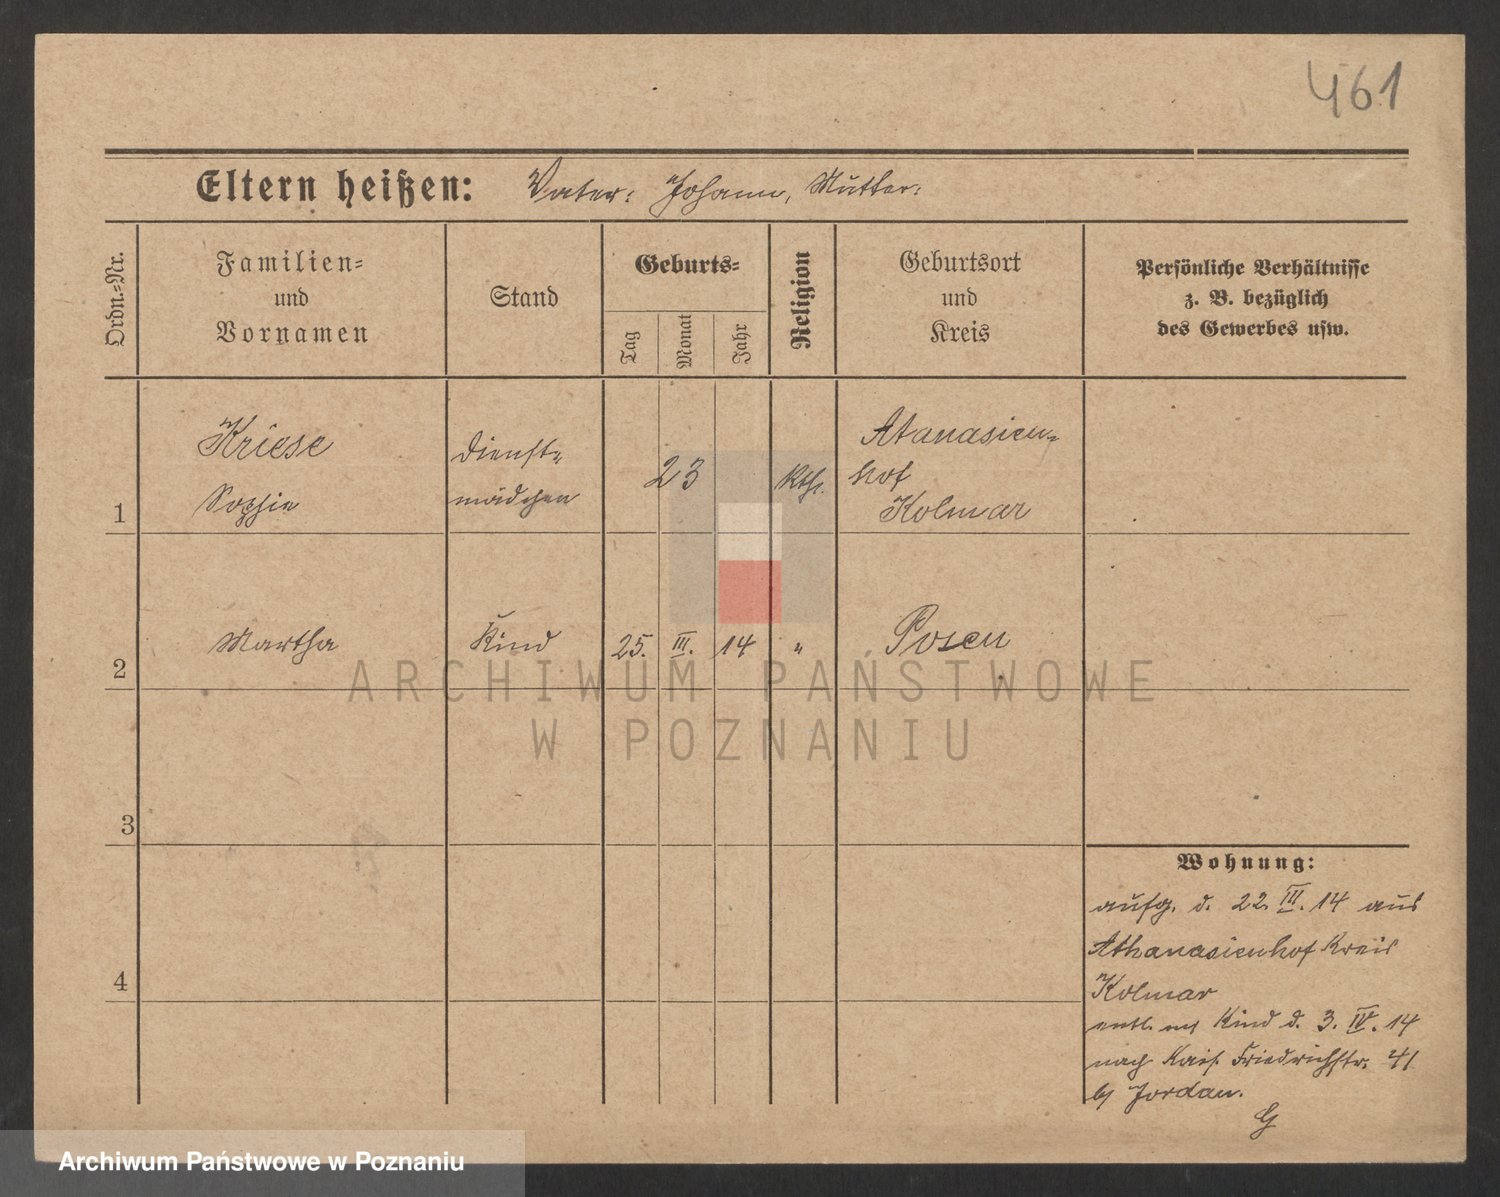 461
Eltern heißen: Vater: Johann, Mutter:
Ordn.-Nr.
Familien-
und
Vornamen
Stand
Geburts-
Tag
Monat
Jahr
Religion
Geburtsort
und
Kreis
Persönliche Verhältnisse
z. B. bezüglich
des Gewerbes usw.
1
Kriese
Sophie
Dienst-
mädchen
23
kth.
Atanasien-
hof
Kolmar
2
Martha
Kind
25. III. 14
"
Posen
3
4
Wohnung:
aufg. d. 22. III. 14 aus
Athanasienhof Kreis
Kolmar
entl. mit Kind d. 3. IV. 14
nach Kais. Friedrichstr. 41
bei Jordan.
G
ARCHIWUM PAŃSTWOWE
W POZNANIU
Archiwum Państwowe w Poznaniu